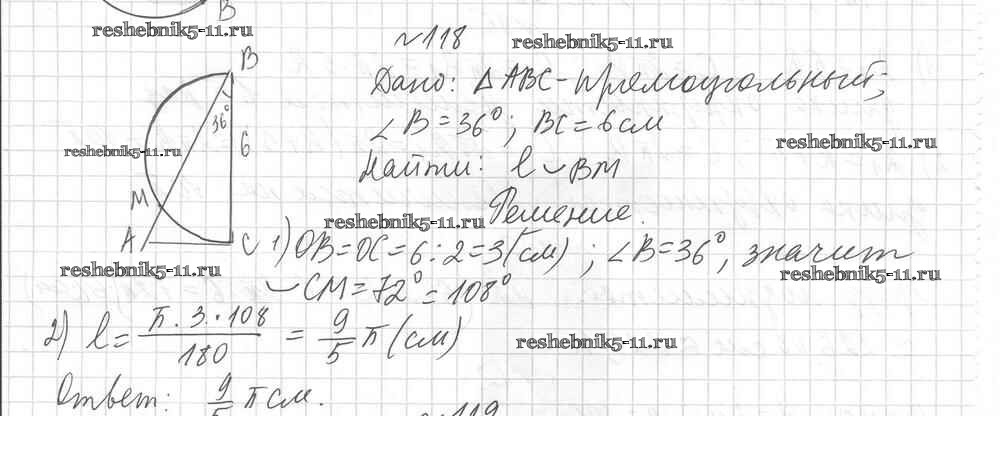 B
reshebnik5-11.ru
№118
reshebnik5-11.ru
B
Дано: △ABC - прямоугольный;
36°
6
∠B = 36°; BC = 6 см
reshebnik5-11.ru
reshebnik5-11.ru
Найти: l ⌣ BM
M
Решение.
reshebnik5-11.ru
A
C
1) OB = OC = 6 : 2 = 3 (см) ; ∠B = 36°, значит
reshebnik5-11.ru
reshebnik5-11.ru
⌣ CM = 72° = 108°
2) l = π · 3 · 108 / 180 = 9/5 π (см)
reshebnik5-11.ru
Ответ: 9/5 π см.
№119